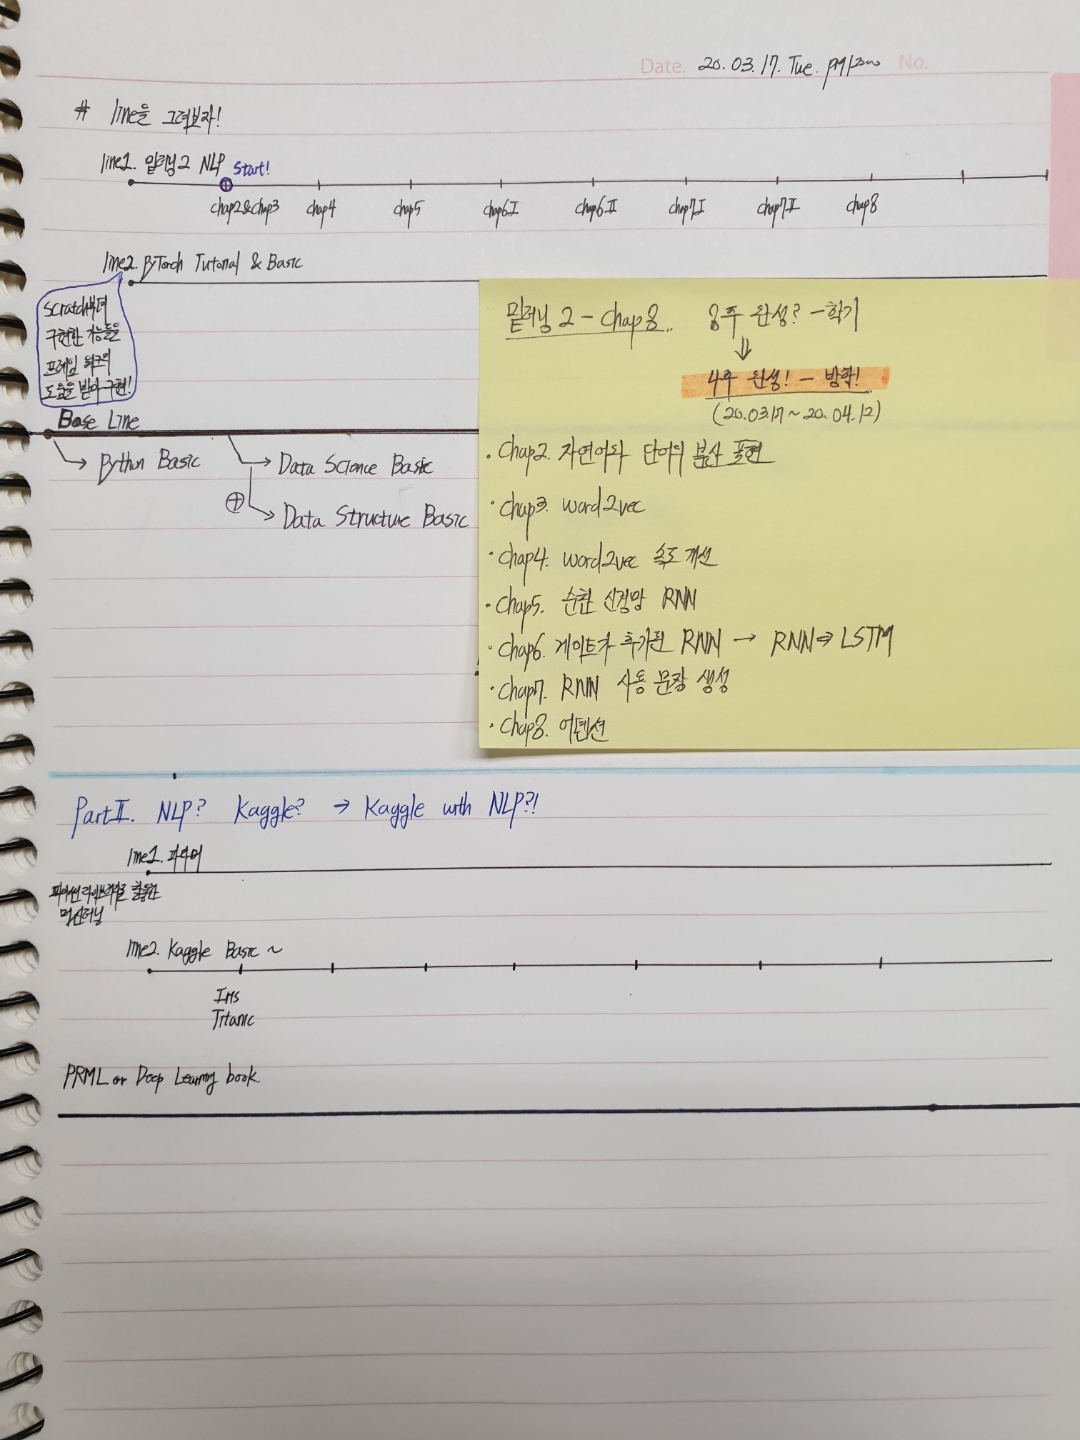 Date. 20. 03. 17. Tue. PM 12:00 No.
# line을 그려보자!
line1. 밑러닝2 NLP Start!
chap2&chap3 chap4 chap5 chap6.I chap6.II chap7.I chap7.II chap8
line2. PyTorch Tutorial & Basic
Scratch부터
구현한 기능들을
프레임 워크의
도움을 받아 구현!
Base Line
Python Basic
Data Science Basic
⊕
Data Structure Basic
밑러닝 2 - Chap8.. 8주 완성? - 학기
⇓
4주 완성! - 방학!
(20.03.17 ~ 20.04.12)
· Chap2. 자연어와 단어의 분산 표현
· Chap3. word2vec
· Chap4. word2vec 속도 개선
· Chap5. 순환 신경망 RNN
· Chap6. 게이트가 추가된 RNN → RNN ⇒ LSTM
· Chap7. RNN 사용 문장 생성
· Chap8. 어텐션
Part II. NLP? Kaggle? → Kaggle with NLP?!
line1. 파라머
파이썬 라이브러리를 활용한
머신러닝
line2. Kaggle Basic ~
Iris
Titanic
PRML or Deep Learning book